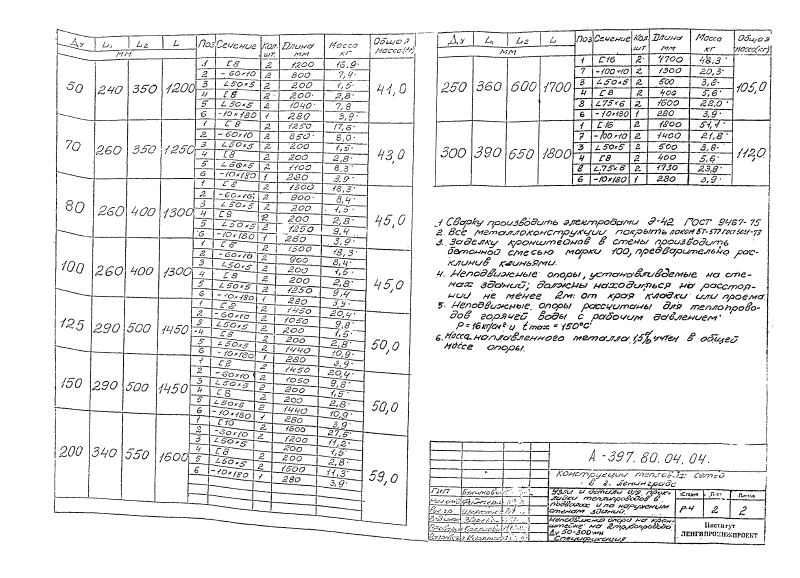 Ду L₁ L₂ L Поз Сечение Кол. шт. Длина мм Масса кг Общая масса(кг)
мм
50 240 350 1200 41,0
1 С8 2 1200 16,9
2 -60×10 2 800 7,4
3 L50×5 2 200 1,5
4 С8 2 200 2,8
5 L50×5 2 1040 7,8
6 -10×180 1 280 3,9
70 260 350 1250 43,0
1 С8 2 1250 17,6
2 -60×10 2 850 8,0
3 L50×5 2 200 1,5
4 С8 2 200 2,8
5 L50×5 2 1100 8,3
6 -10×180 1 280 3,9
80 260 400 1300 45,0
1 С8 2 1300 18,3
2 -60×10 2 900 8,4
3 L50×5 2 200 1,5
4 С8 2 200 2,8
5 L50×5 2 1250 9,4
6 -10×180 1 280 3,9
100 260 400 1300 45,0
1 С8 2 1300 18,3
2 -60×10 2 900 8,4
3 L50×5 2 200 1,5
4 С8 2 200 2,8
5 L50×5 2 1250 9,4
6 -10×180 1 280 3,9
125 290 500 1450 50,0
1 С8 2 1450 20,4
2 -60×10 2 1050 9,8
3 L50×5 2 200 1,5
4 С8 2 200 2,8
5 L50×5 2 1440 10,9
6 -10×180 1 280 3,9
150 290 500 1450 50,0
1 С8 2 1450 20,4
2 -60×10 2 1050 9,8
3 L50×5 2 200 1,5
4 С8 2 200 2,8
5 L50×5 2 1440 10,9
6 -10×180 1 280 3,9
200 340 550 1600 59,0
1 С10 2 1600 27,5
2 2 1200 11,2
3 L50×5 2 200 1,5
4 С8 2 200 2,8
5 L50×5 2 1500 11,3
6 -10×180 1 280 3,9
Ду L₁ L₂ L Поз Сечение Кол. шт Длина мм Масса кг Общая масса(кг)
мм
250 360 600 1700 105,0
1 С16 2 1700 48,3
7 -100×10 2 1300 20,3
3 L50×5 2 500 3,8
4 С8 2 400 5,6
8 L75×6 2 1600 22,0
6 -10×180 1 280 3,9
300 390 650 1800 112,0
1 С16 2 1800 51,1
7 -100×10 2 1400 21,8
3 L50×5 2 500 3,8
4 С8 2 400 5,6
8 L75×6 2 1730 23,8
6 -10×180 1 280 3,9
1 Сварку производить электродами Э-42 ГОСТ 9467-75
2. Все металлоконструкции покрыть лаком БТ-577 ГОСТ 5631-79
3. Заделку кронштейнов в стены производить
бетонной смесью марки 100, предварительно рас-
клинив клиньями.
4. Неподвижные опоры, устанавливаемые на сте-
нах зданий, должны находиться на расстоя-
нии не менее 2м от края кладки или проема.
5. Неподвижные опоры рассчитаны для теплопрово-
дов горячей воды с рабочим давлением
Р=16кг/см² и tmax = 150°С
6. Масса наплавленного металла 1,5% учтен в общей
массе опоры.
А-397.80.04.04.
Конструкции тепловых сетей
в г. Ленинграде
Узлы и детали для прок-
ладки теплопроводов в
подвалах и по наружным
стенам зданий.
Стадия Лист Листов
Р.Ч 2 2
Неподвижная опора на крон-
штейне на 2 трубопровода
Ду 50-300мм
Спецификация
Институт
ЛЕНГИПРОИНЖПРОЕКТ
ГИП